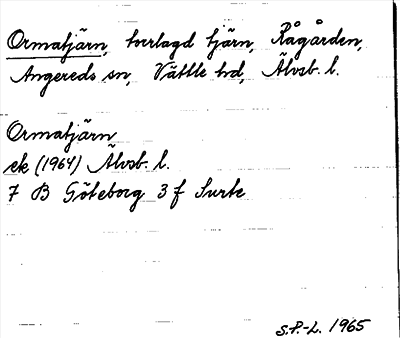 Ormatjärn, torrlagd tjärn, Rågården,
Angereds sn, Vättle hd, Älvsb. l.
Ormatjärn
ek (1964) Älvsb. l.
7 B Göteborg 3 f Surte
S.P.-L. 1965